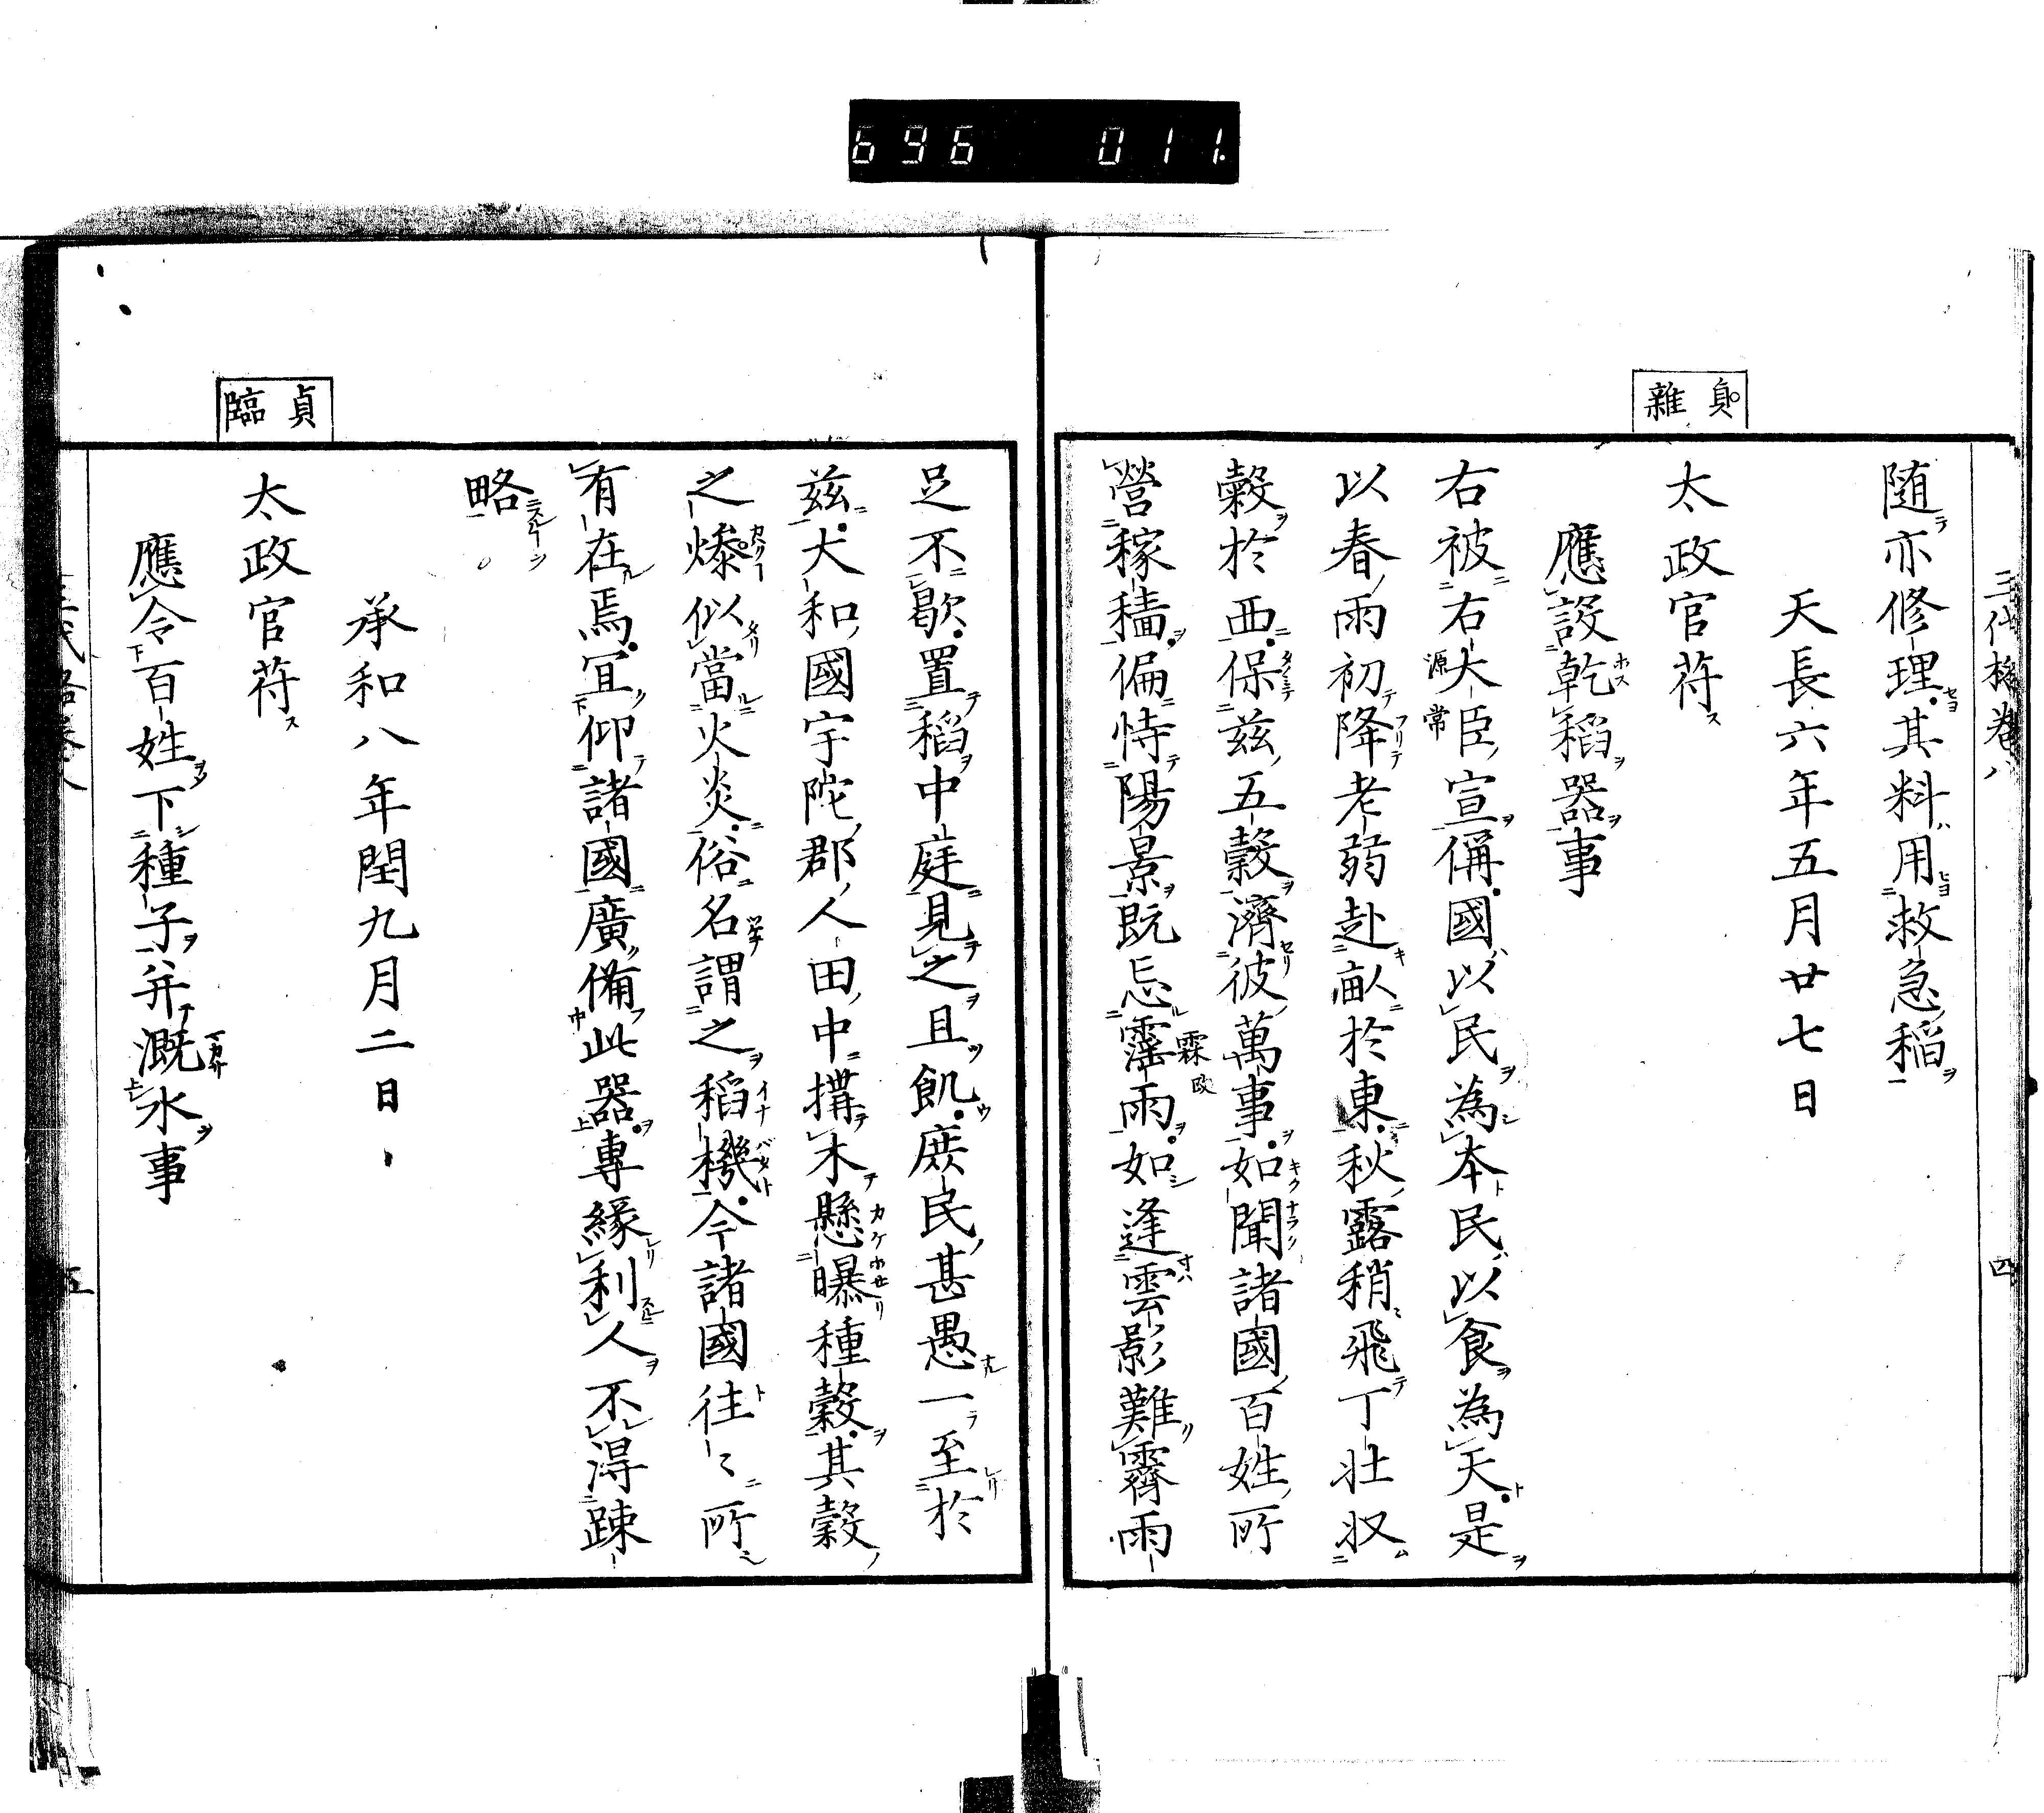 696 011.
三代格卷八 四
随亦修理其料用救急稲
天長六年五月廿七日
貞 雜
太政官苻
應設乾稲器事
右被右大臣宣偁國以民為本民以食為天是
源常
以春雨初降老弱赴畝於東秋露稍飛丁壮収
穀於西保茲五穀濟彼萬事如聞諸國百姓所
營稼穡偏恃陽景既忘霪雨如逢雲影難霽雨
霖欤
足不歇置稻中庭見之且飢庶民甚愚一至於
茲大和國宇陀郡人田中搆木懸曝種穀其穀
之㷮似當火炎俗名謂之稻機今諸國往々所
有在焉冝仰諸國廣備此器專緣利人不得踈
略
承和八年閏九月二日
貞 臨
太政官苻
應令百姓下種子并漑水事